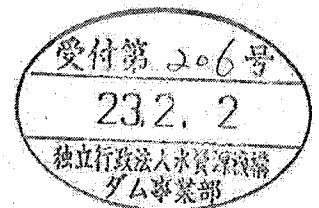 受付第 206 号
23. 2. 2
独立行政法人水資源機構
ダム事業部